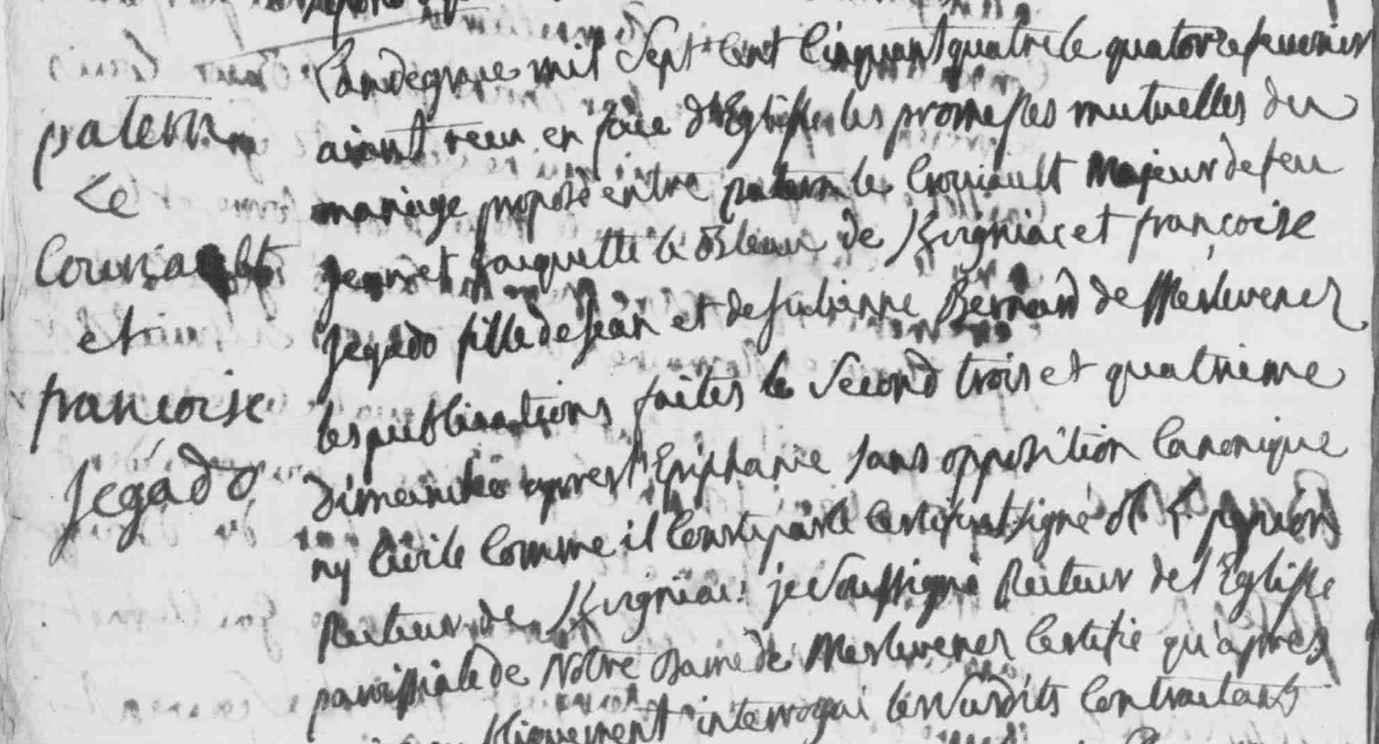 patern
Le
Couriault
et
francoise
Jegado
L'an de grace mil Sept cent Cinquant quatre le quatorze fevrier
aiant receu en face d'Eglisse les promesses mutuelles du
mariage proposé entre patern le Couriault Majeur de feu
Jean et Jacquette le de Kvigniac et françoise
Jegado fille de Jean et de Julianne Bernard de Merlevenez
les publications faites le Second trois et quatrieme
dimanche apres l'Epiphanie sans opposition Canonique
ny Civile Comme il Conste par le Certificat signé
Recteur de Kvigniac. je Soussigné Recteur de l'Eglisse
parrissiale de Notre Dame de Merlevenez Certifie qu'apres
interrogai les Susdits Contractants